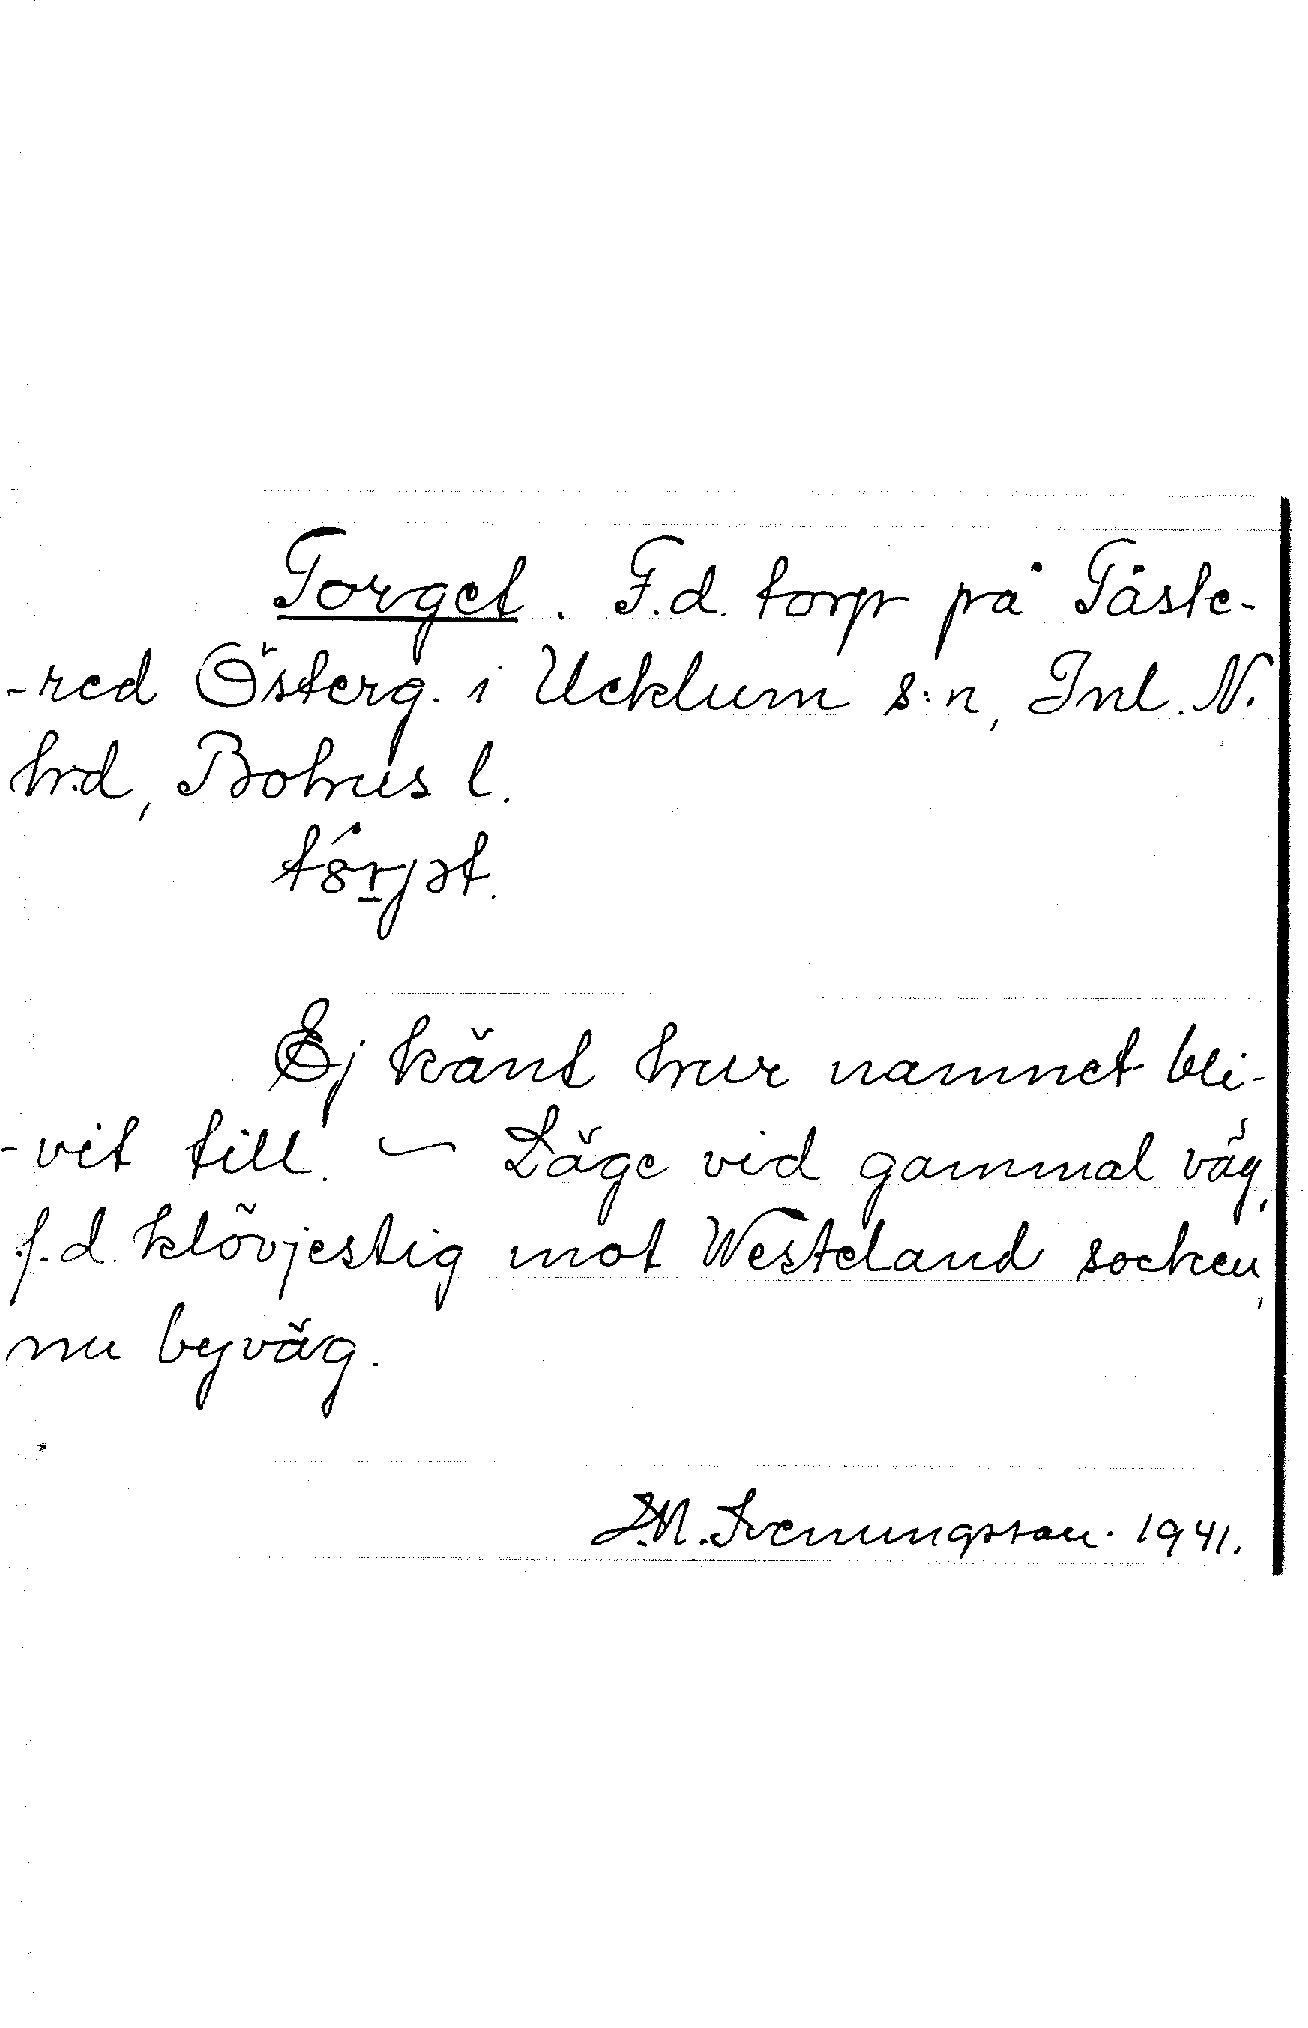 Torget. F.d. torp på Tåste-
-red Österg. i Ucklum s:n, Inl. N.
hrd, Bohus l.
Ej känt hur namnet bli-
-vit till. — Läge vid gammal väg,
f.d. klövjestig mot Westeland socken,
nu byväg.
1941.